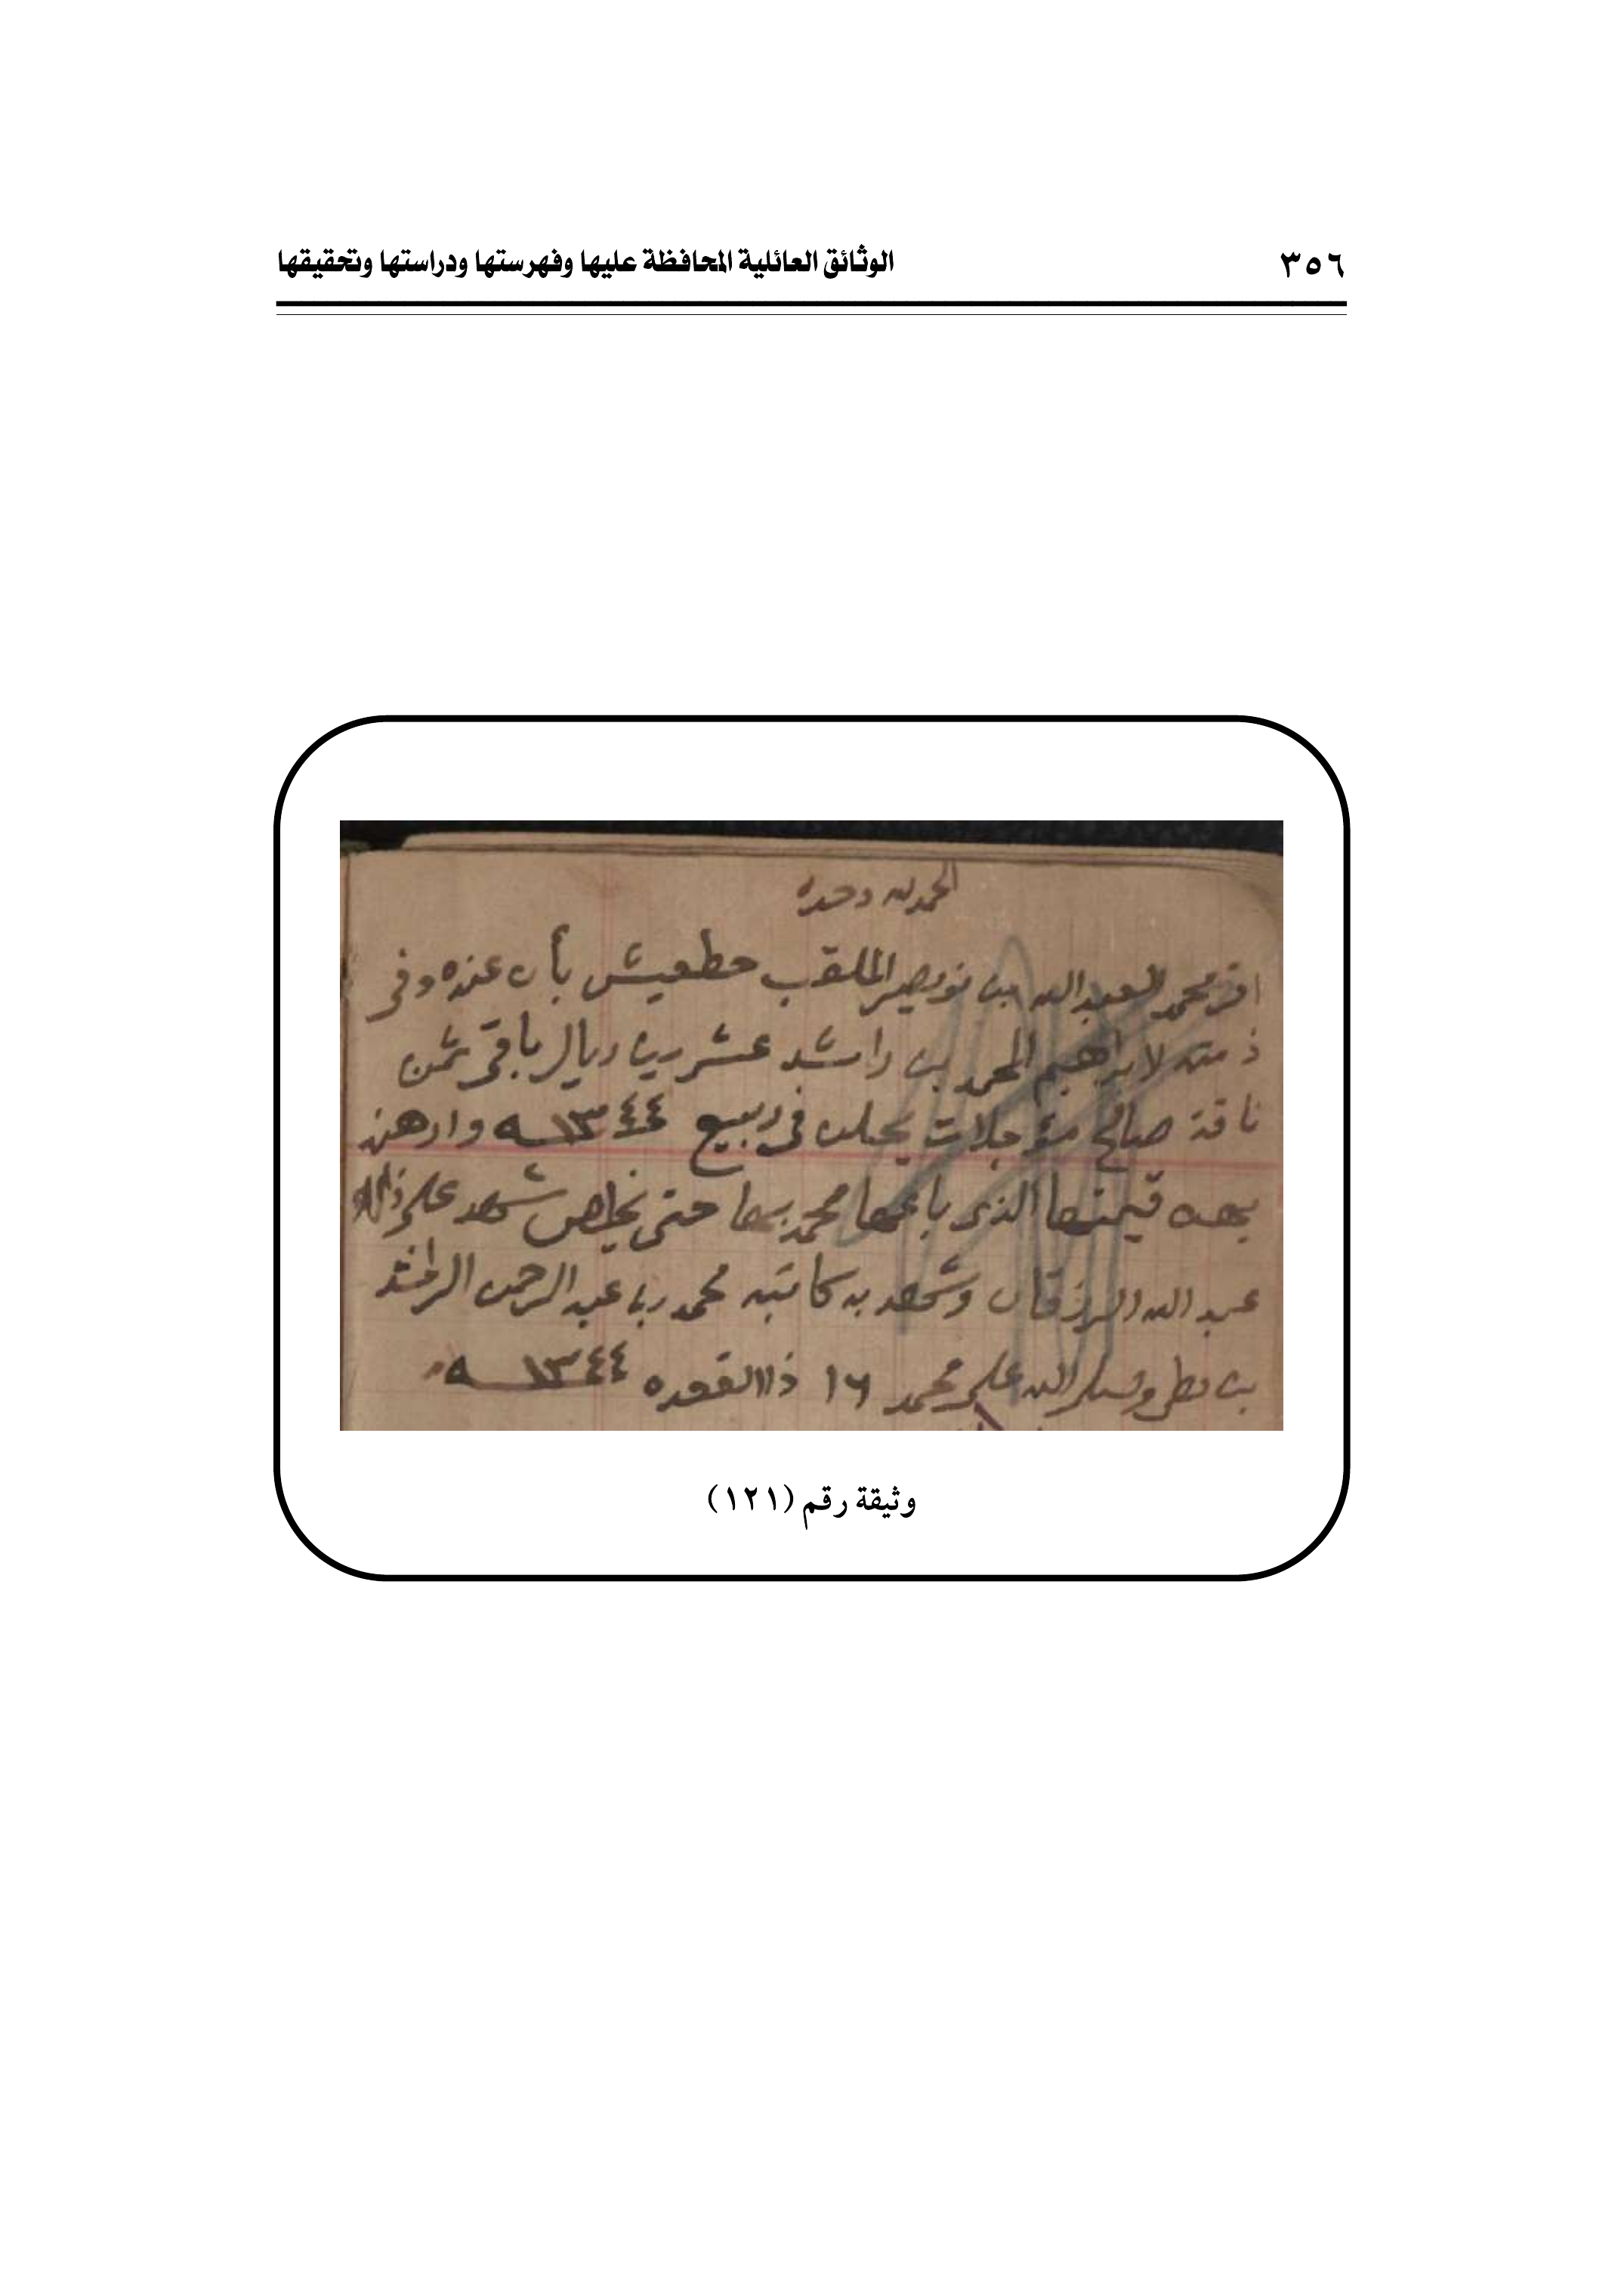 ٣٥٦
الوثائق العائلية المحافظة عليها وفهرستها ودراستها وتحقيقها
الحمد لله وحده
اقر محمد العبدالله بن نويصر الملقب حطعيش بأن عنده وفي
ذمته لابراهيم المحمد بن راشد عشرين ريال باقي ثمن
ناقة صالح مؤجلات يحلن في ربيع ١٣٤٤هـ وارهنه
بهذه قيمتها الذي باعها محمد بها حتى يخلص شهد على ذالك
عبد الله الرزقان وشهد به كاتبه محمد بن عبد الرحمن الراشد
بن وصلى الله على محمد ١٦ ذاالقعده ١٣٤٤هـ
وثيقة رقم (١٢١)